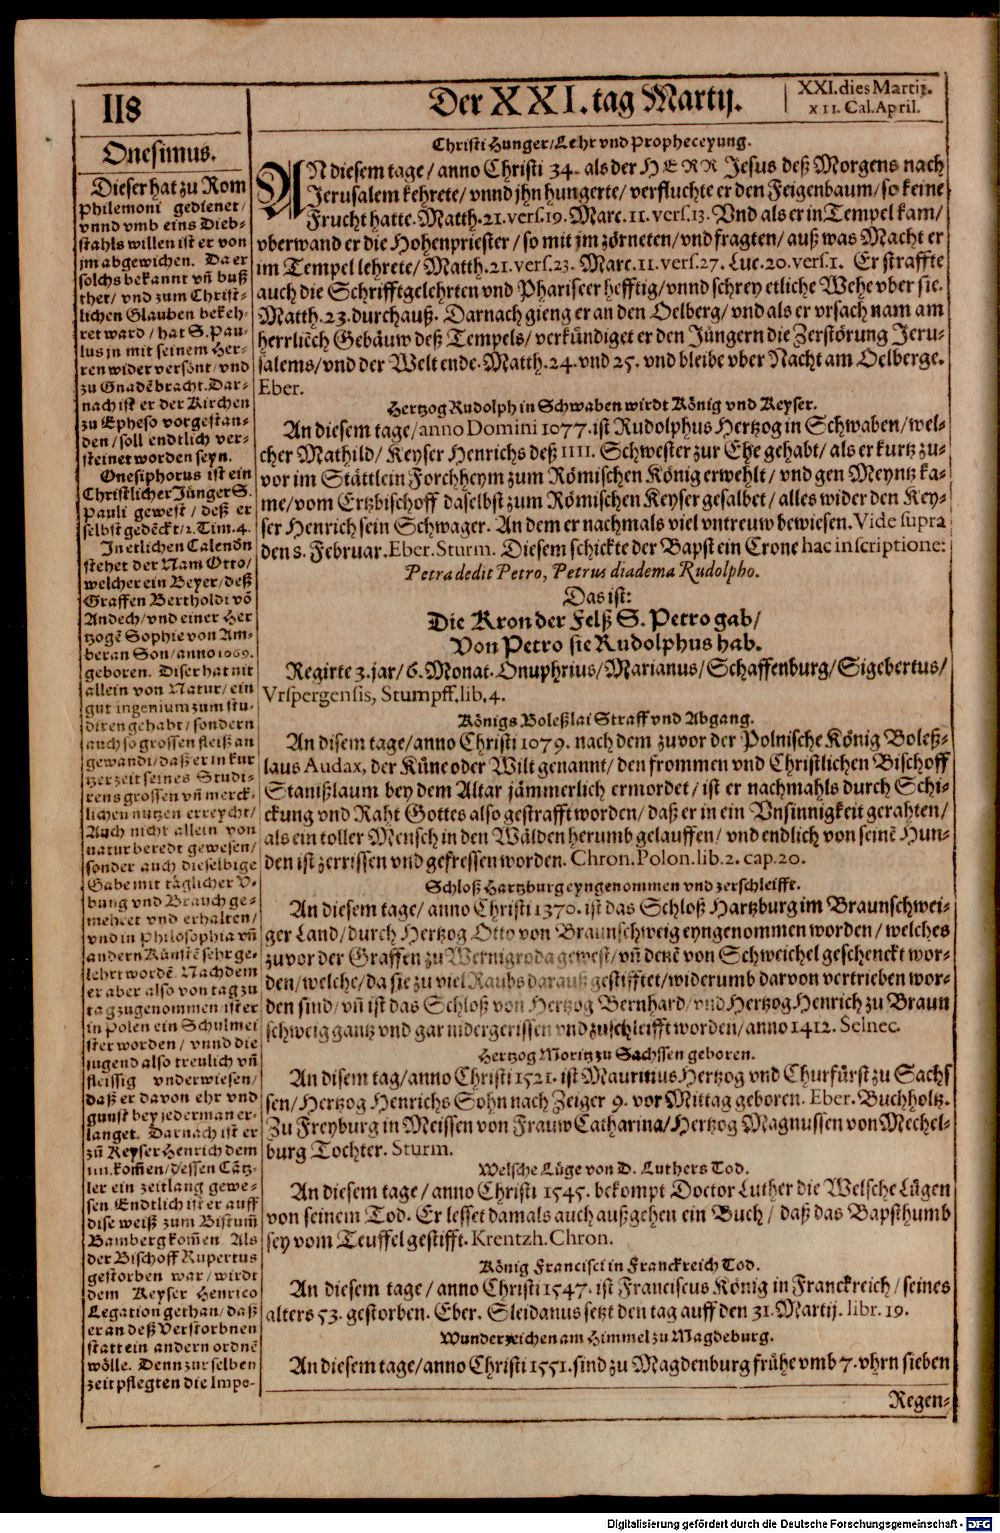 118
Der XXI. tag Martij.
XXI. dies Martij.
XII. Cal. April.
Onesimus.
Dieser hat zu Rom
Philemoni gedienet/
vnnd vmb eins Dieb-
stahls willen ist er von
jm abgewichen. Da er
solchs bekannt vñ buß
thet/ vnd zum Christ-
lichen Glauben bekeh-
ret ward/ hat S. Pau-
lus jn mit seinem Her-
ren wider versönt/ vnd
zu Gnadē bracht. Dar-
nach ist er der Kirchen
zu Epheso vorgestan-
den/ soll endtlich ver-
steinet worden seyn.
Onesiphorus ist ein
Christlicher Jünger S.
Pauli gewest/ deß er
selbst gedēckt/ 2. Tim. 4.
In etlichen Calendn
stehet der Nam Otto/
welcher ein Beyer/ deß
Graffen Bertholdi võ
Andech/ vnd einer Her
tzogē Sophie von Am-
beran Son/ anno 1069.
geboren. Diser hat nit
allein von Natur/ ein
gut ingenium zum stu-
diren gehabt/ sondern
auch so grossen fleiß an
gewandt/ daß er in kur
tzer zeit seines Studi-
rens grossen vñ merck-
lichen nutzen erreycht/
Auch nicht allein von
natur beredt gewesen/
sonder auch dieselbige
Gabe mit täglicher V-
bung vnd Brauch ge-
mehret vnd erhalten/
vnd in Philosophia vñ
andern Künstē sehr ge-
lehrt wordē. Nach dem
er aber also von tag zu
tag zugenommen ist er
in Polen ein Schulmei
ster worden/ vnnd die
jugend also treulich vñ
fleissig vnderwiesen/
daß er davon ehr vnd
gunst bey jederman er-
langet. Darnach ist er
zū Keyser Henrich dem
IIII. kom̃en/ dessen Cātz-
ler ein zeitlang gewe-
sen Endtlich ist er auff
dise weiß zum Bistum̃
Bamberg kom̃en. Als
der Bischoff Rupertus
gestorben war/ wirdt
dem Keyser Henrico
Legation gethan/ daß
er an deß Verstorbnen
statt ein andern ordnē
wölle. Denn zur selben
zeit pflegten die Impe-
Christi Hunger/ Lehr vnd Propheceyung.
AN diesem tage/ anno Christi 34. als der HERR Jesus deß Morgens nach
Jerusalem kehrete/ vnnd jhn hungerte/ verfluchte er den Feigenbaum/ so keine
Frucht hatte. Matth. 21. vers. 19. Marc. 11. vers. 13. Vnd als er in Tempel kam/
vberwand er die Hohenpriester/ so mit jm zörneten/ vnd fragten/ auß was Macht er
im Tempel lehrete/ Matth. 21. vers. 23. Marc. 11. vers. 27. Luc. 20. vers. 1. Er straffte
auch die Schrifftgelehrten vnd Phariseer hefftig/ vnnd schrey etliche Wehe vber sie.
Matth. 23. durchauß. Darnach gieng er an den Oelberg/ vnd als er vrsach nam am
herrliēch Gebäuw deß Tempels/ verkündiget er den Jüngern die Zerstörung Jeru-
salems/ vnd der Welt ende. Matth. 24. vnd 25. vnd bleibe vber Nacht am Oelberge.
Eber.
Hertzog Rudolph in Schwaben wirdt König vnd Keyser.
An diesem tage/ anno Domini 1077. ist Rudolphus Hertzog in Schwaben/ wel-
cher Mathild/ Keyser Henrichs deß IIII. Schwester zur Ehe gehabt/ als er kurtz zu-
vor im Stättlein Forchheym zum Römischen König erwehlt/ vnd gen Meyntz ka-
me/ vom Ertzbischoff daselbst zum Römischen Keyser gesalbet/ alles wider den Key-
ser Henrich sein Schwager. An dem er nachmals viel vntreuw bewiesen. Vide supra
den 8. Februar. Eber. Sturm. Diesem schickte der Bapst ein Crone hac inscriptione:
Petra dedit Petro, Petrus diadema Rudolpho.
Das ist:
Die Kron der Felß S. Petro gab/
Von Petro sie Rudolphus hab.
Regirte 3. jar/ 6. Monat. Onuphrius/ Marianus/ Schaffenburg/ Sigebertus/
Vrspergensis, Stumpff. lib. 4.
Königs Boleßlai Straff vnd Abgang.
An disem tage/ anno Christi 1079. nach dem zuvor der Polnische König Boleß-
laus Audax, der Küne oder Wilt genannt/ den frommen vnd Christlichen Bischoff
Stanißlaum bey dem Altar jämmerlich ermordet/ ist er nachmahls durch Schi-
ckung vnd Raht Gottes also gestrafft worden/ daß er in ein Vnsinnigkeit gerahten/
als ein toller Mensch in den Wälden herumb gelauffen/ vnd endtlich von seinē Hun-
den ist zerrissen vnd gefressen worden. Chron. Polon. lib. 2. cap. 20.
Schloß Hartzburg eyngenommen vnd zerschleifft.
An diesem tage/ anno Christi 1370. ist das Schloß Hartzburg im Braunschwei-
ger Land/ durch Hertzog Otto von Braunschweig eyngenommen worden/ welches
zuvor der Graffen zu Wernigroda gewest/ vñ denē von Schweichel geschenckt wor-
den/ welche/ da sie zu viel Raubs darauß gestifftet/ widerumb darvon vertrieben wor-
den sind/ vñ ist das Schloß von Hertzog Bernhard/ vnd Hertzog Henrich zu Braun
schweig gantz vnd gar nidergerissen vnd zuschleifft worden/ anno 1412. Selnec.
Hertzog Moritz zu Sachssen geboren.
An disem tag/ anno Christi 1521. ist Mauritius Hertzog vnd Churfürst zu Sachs
sen/ Hertzog Henrichs Sohn nach Zeiger 9. vor Mittag geboren. Eber. Buchholtz.
Zu Freyburg in Meissen von Frauw Catharina/ Hertzog Magnussen von Mechel-
burg Tochter. Sturm.
Welsche Lüge von D. Luthers Tod.
An diesem tage/ anno Christi 1545. bekompt Doctor Luther die Welsche Lügen
von seinem Tod. Er lesset damals auch außgehen ein Buch/ daß das Bapsthumb
sey vom Teuffel gestifft. Krentzh. Chron.
König Francisci in Franckreich Tod.
An diesem tage/ anno Christi 1547. ist Franciscus König in Franckreich/ seines
alters 53. gestorben. Eber. Sleidanus setzt den tag auff den 31. Martij. libr. 19.
Wunderzeichen am Himmel zu Magdeburg.
An diesem tage/ anno Christi 1551. sind zu Magdenburg frühe vmb 7. vhrn sieben
Regen-
Digitalisierung gefördert durch die Deutsche Forschungsgemeinschaft - DFG